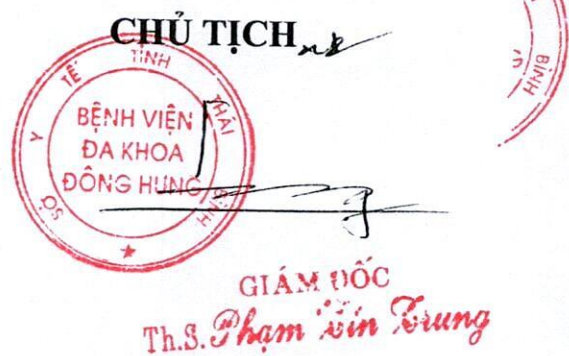 CHỦ TỊCH
SỞ Y TẾ TỈNH THÁI BÌNH
BỆNH VIỆN
ĐA KHOA
ĐÔNG HƯNG
★
BÌNH
GIÁM ĐỐC
Th.S. Phạm Tín Trung